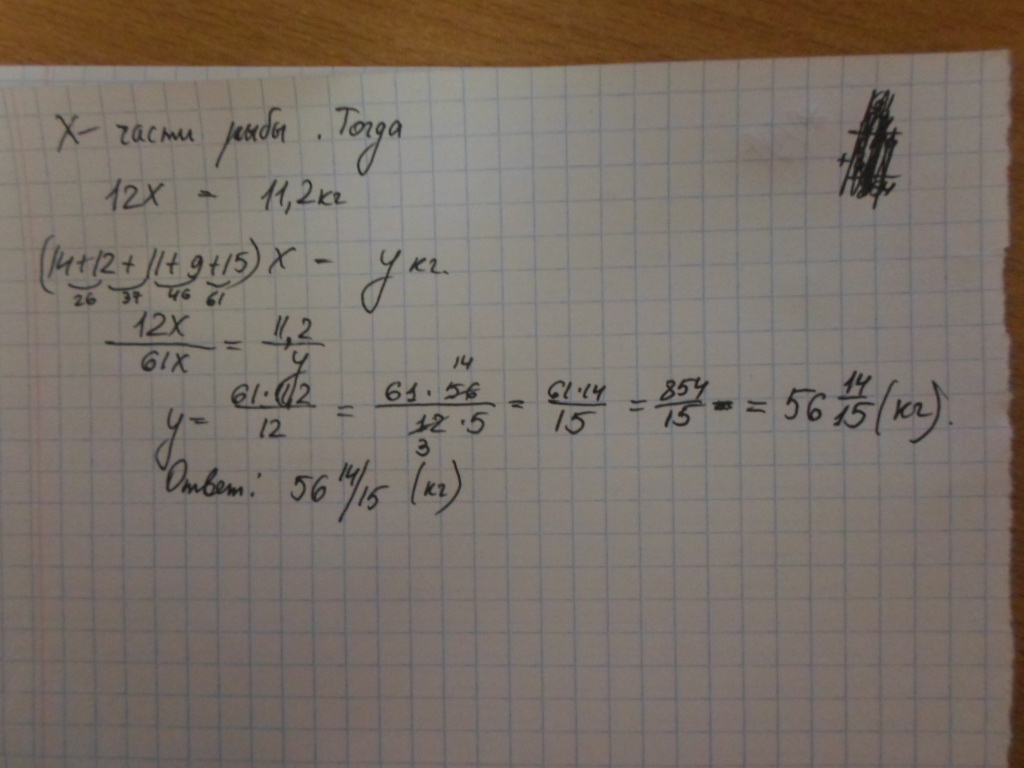 X - части рыбы. Тогда
12X - 11,2кг
(14+12+11+9+15)X - y кг.
26 37 46 61
12X/61X = 11,2/y
y = 61·11,2/12 = 61·56/12·5 = 61·14/15 = 854/15 = 56 14/15 (кг).
14
3
Ответ: 56 14/15 (кг)